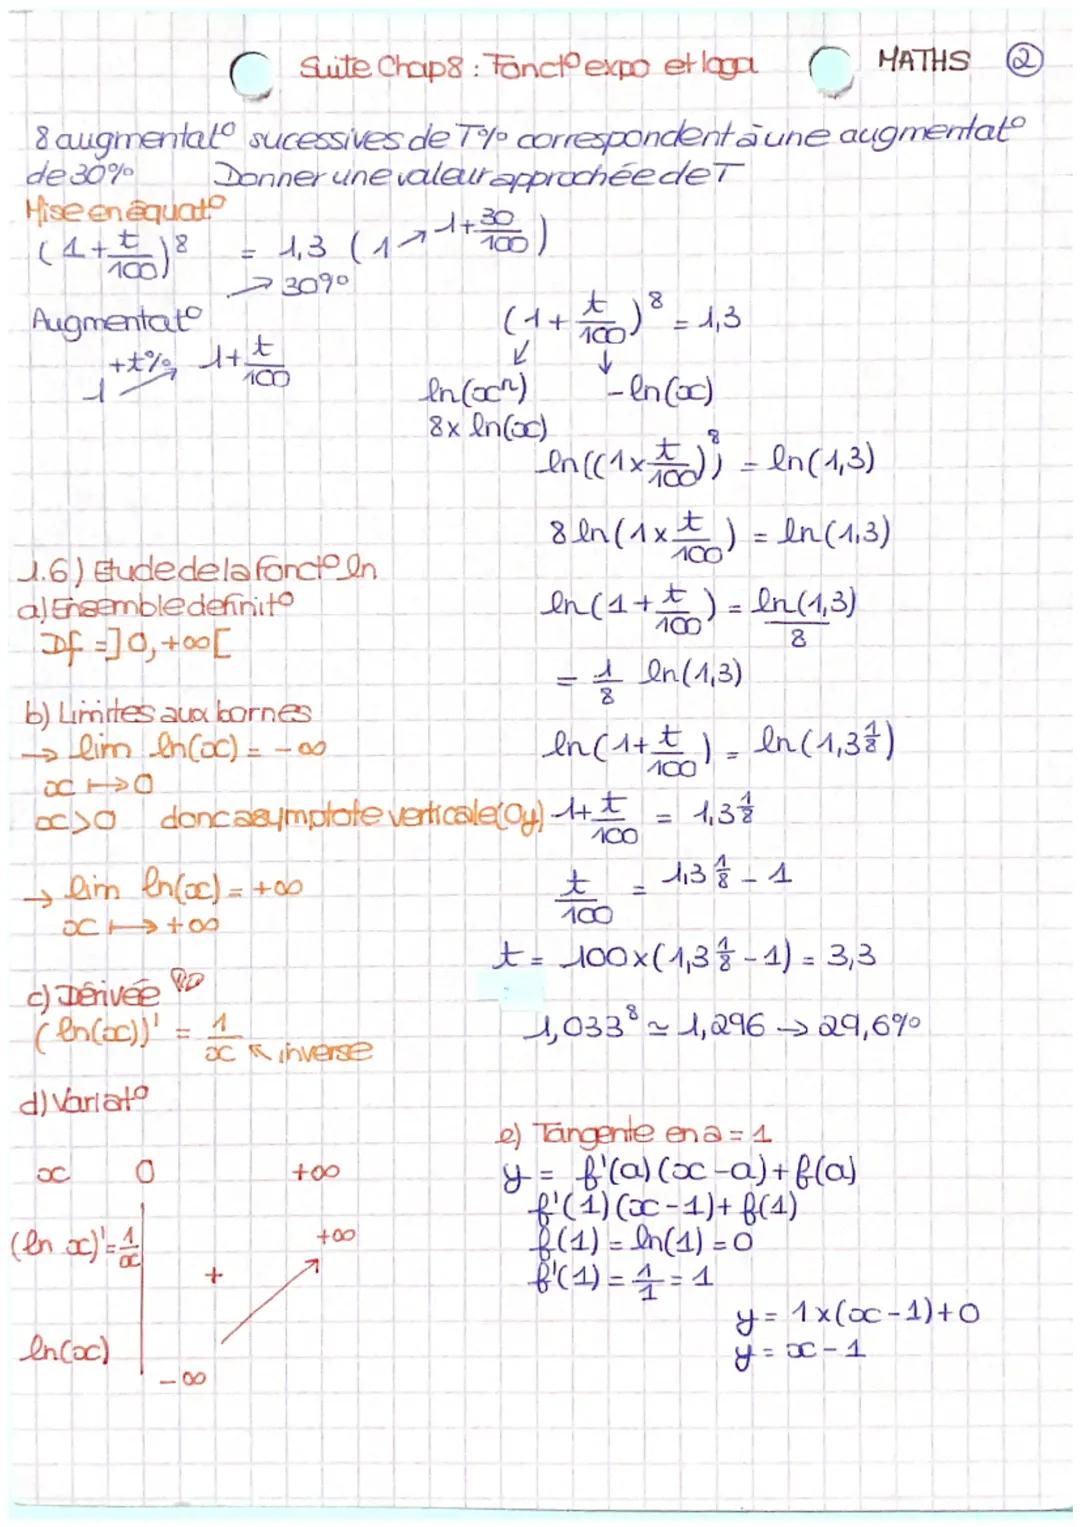 Suite Chap8 : Fonct° expo et loga MATHS ②
8 augmentat° sucessives de T% correspondent à une augmentat°
de 30% Donner une valeur approchée de T
Mise en équat°
(1+t/100)^8 = 1,3 (1 ↗ 1+30/100)
→ 30%
Augmentat°
+t% 1+t/100
1
(1+t/100)^8 = 1,3
ln(x^n) -ln(x)
8x ln(x)
ln((1×t/100))^8 = ln(1,3)
8 ln(1×t/100) = ln(1,3)
ln(1+t/100) = ln(1,3)/8
= 1/8 ln(1,3)
ln(1+t/100) = ln(1,3^1/8)
1+t/100 = 1,3^1/8
t/100 = 1,3^1/8 - 1
t = 100×(1,3^1/8 - 1) = 3,3
1,033^8 ≃ 1,296 → 29,6%
1.6) Etude de la fonct° ln
a) Ensemble definit°
Df =]0, +∞[
b) Limites aux bornes
→ lim ln(x) = -∞
x ↦ 0
x>0 donc asymptote verticale (Oy)
→ lim ln(x) = +∞
x ↦ +∞
c) Dérivée
(ln(x))' = 1/x ↖ inverse
d) Variat°
x 0 +∞
(ln x)'=1/x + +∞
ln(x) -∞
e) Tangente en a = 1
y = f'(a)(x-a)+f(a)
f'(1)(x-1)+f(1)
f(1) = ln(1) = 0
f'(1) = 1/1 = 1
y = 1×(x-1)+0
y = x-1